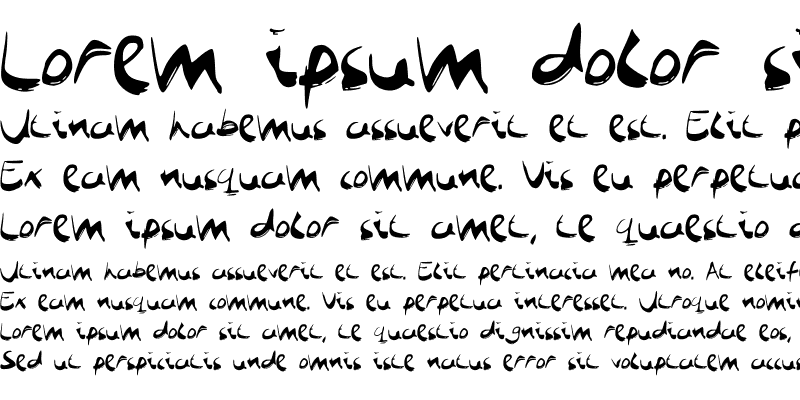 Lorem ipsum dolor si
Utinam habemus assueverit et est. Elit p
Ex eam nusquam commune. Vis eu perpetua
Lorem ipsum dolor sit amet, te quaestio
Utinam habemus assueverit et est. Elit pertinacia mea no. At eleif
Ex eam nusquam commune. Vis eu perpetua interesset. Utroque nomin
Lorem ipsum dolor sit amet, te quaestio dignissim repudiandae eos,
Sed ut perspiciatis unde omnis iste natus error sit voluptatem accus